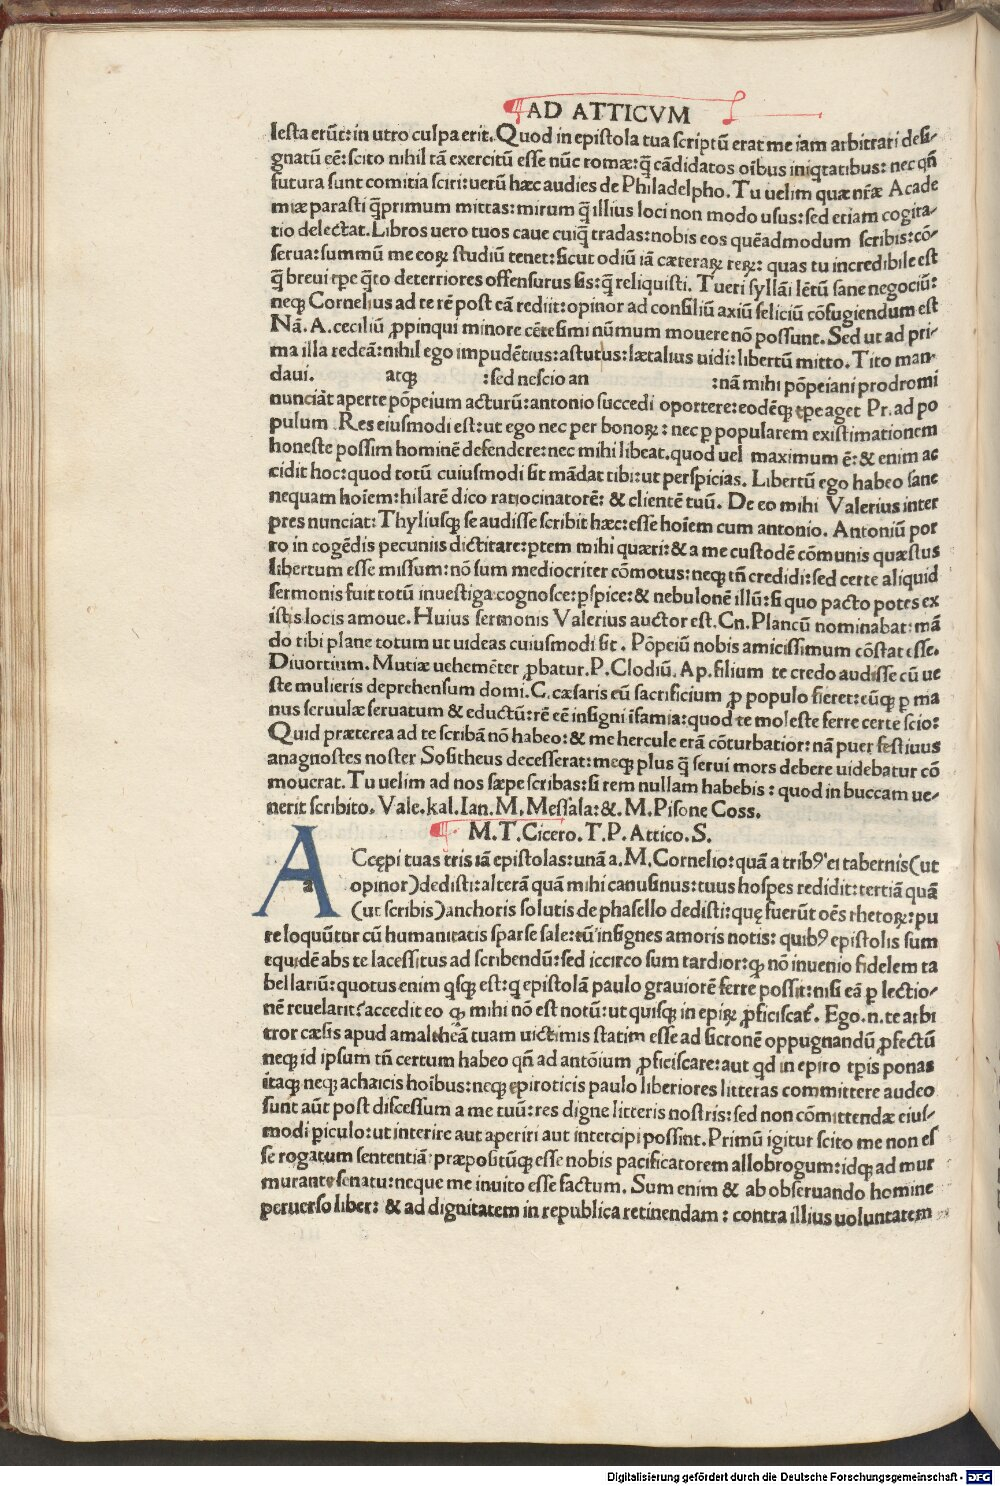 AD ATTICVM
lesta erūt: in utro culpa erit. Quod in epistola tua scriptū erat me iam arbitrari desi-
gnatū eē: scito nihil tā exercitū esse nūc romæ: q̄ cādidatos oībus iniqtatibus: nec qn̄
futura sunt comitia sciri: uerū hæc audies de Philadelpho. Tu uelim quæ nr̄æ Acade
miæ parasti q̄primum mittas: mirum q̄ illius loci non modo usus: sed etiam cogita-
tio delectat. Libros uero tuos caue cuiq̄ tradas: nobis eos quēadmodum scribis: cō-
serua: summū me eoꝝ studiū tenet: sicut odiū iā cæteraꝝ reꝝ: quas tu incredibile est
q̄ breui tꝑe q̄to deteriores offensurus sis: q̄ reliquisti. Tueri syllāi lētū sane negociū:
neqꝫ Cornelius ad te rē post eā rediit: opinor ad consiliū axiū seliciū cōfugiendum est
Nā. A. ceciliū ꝓpinqui minore cētesimi nūmum mouere nō possunt. Sed ut ad pri-
ma illa redeā: nihil ego impudētius: astutus: lætalius uidi: libertū mitto. Tito man-
daui. atqꝫ : sed nescio an : nā mihi pōpeiani prodromi
nunciāt aperte pōpeium acturū: antonio succedi oportere: eodēqꝫ tꝑe aget Pr. ad po
pulum. Res eiusmodi est: ut ego nec per bonoꝝ: nec ꝑ popularem existimationem
honeste possim hominē defendere: nec mihi libeat. quod uel maximum ē: & enim ac
cidit hoc: quod totū cuiusmodi sit mādat tibi: ut perspicias. Libertū ego habeo sane
nequam hoīem: hilarē dico ratiocinatorē: & clientē tuū. De eo mihi Valerius inter
pres nunciat: Thyliusqꝫ se audisse scribit hæc: esse hoīem cum antonio. Antoniū por
ro in cogēdis pecuniis dictitare: ꝑtem mihi quæri: & a me custodē cōmunis quæstus
libertum esse missum: nō sum mediocriter cōmotus: neqꝫ tn̄ credidi: sed certe aliquid
sermonis fuit totū inuestiga: cognosce: ꝑspice: & nebulonē illū: si quo pacto potes ex
istis locis amoue. Huius sermonis Valerius auctor est. Cn. Plancū nominabat: mā
do tibi plane totum ut uideas cuiusmodi sit. Pōpeiū nobis amicissimum cōstat esse.
Diuortium. Mutiæ uehemēter ꝓbatur. P. Clodiū. Ap. filium te credo audisse cū ue
ste mulieris deprehensum domi. C. cæsaris eū sacrificium ꝓ populo fieret: eūqꝫ ꝑ ma
nus seruulæ seruatum & eductū: rē eē insigni īfamia: quod te moleste ferre certe scio:
Quid præterea ad te scribā nō habeo: & me hercule erā cōturbatior: nā puer festiuus
anagnostes noster Sositheus decesserat: meqꝫ plus q̄ serui mors debere uidebatur cō
mouerat. Tu uelim ad nos sæpe scribas: si rem nullam habebis: quod in buccam ue-
nerit scribito. Vale. kal. Ian. M. Messala: &. M. Pisone Coss.
M. T. Cicero. T. P. Attico. S.
A a Ccępi tuas tris iā epistolas: unā a. M. Cornelio: quā a tribꝰ ei tabernis (ut
opinor) dedisti: alterā quā mihi canusinus: tuus hospes redidit: tertiā quā
(ut scribis) anchoris solutis de phasello dedisti: quę fuerūt oēs rhetoꝝ: pu
re loquūtur cū humanitatis sparse sale: tū insignes amoris notis: quibꝰ epistolis sum
equidē abs te lacessitus ad scribendū: sed iccirco sum tardior: qꝫ nō inuenio fidelem ta
bellariū: quotus enim qsqꝫ est: q epistolā paulo grauiorē ferre possit: nisi eā ꝑ lectio-
nē reuelarit? accedit eo qꝫ mihi nō est notū: ut quisqꝫ in epiꝝ ꝓficiscat̄. Ego. n. te arbi
tror cæsis apud amaltheā tuam uictimis statim esse ad sicronē oppugnandū ꝓfectū
neqꝫ id ipsum tn̄ certum habeo qn̄ ad antōium ꝓficiscare: aut qd in epiro tꝑis ponas
itaqꝫ neqꝫ achaicis hoībus: neqꝫ epiroticis paulo liberiores litteras committere audeo
sunt aūt post discessum a me tuū: res digne litteris nostris: sed non cōmittendæ eius-
modi ꝑiculo: ut interire aut aperiri aut intercipi possint. Primū igitur scito me non es
se rogatum sententiā: præpositūqꝫ esse nobis pacificatorem allobrogum: idqꝫ ad mur
murante senatu: neque me inuito esse factum. Sum enim & ab obseruando homine
peruerso liber: & ad dignitatem in republica retinendam: contra illius uoluntatem
Digitalisierung gefördert durch die Deutsche Forschungsgemeinschaft - DFG